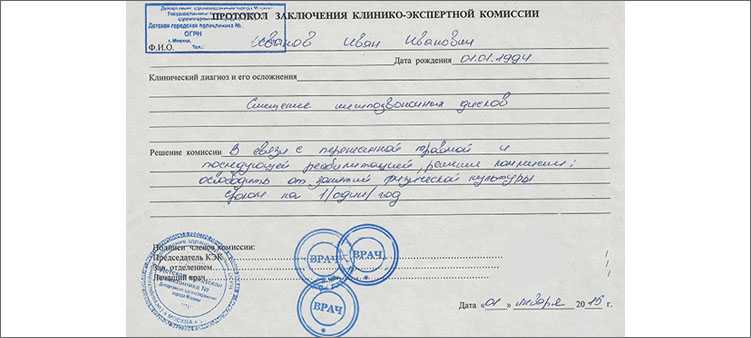 Департамент здравоохранения города Москвы
Детская городская поликлиника №
ОГРН
г. Москва, Тел.:
ПРОТОКОЛ ЗАКЛЮЧЕНИЯ КЛИНИКО-ЭКСПЕРТНОЙ КОМИССИИ
Ф.И.О. Иванов Иван Иванович
Дата рождения 01.01.1994
Клинический диагноз и его осложнения
Смещение межпозвоночных дисков
Решение комиссии В связи с перенесенной травмой и
последующей реабилитацией, решение комиссии:
освободить от занятий физической культуры
сроком на 1/один/год
Подписи членов комиссии:
Председатель КЭК
Зав. отделением
Лечащий врач
ВРАЧ
ВРАЧ
ВРАЧ
Дата «01» января 2015 г.